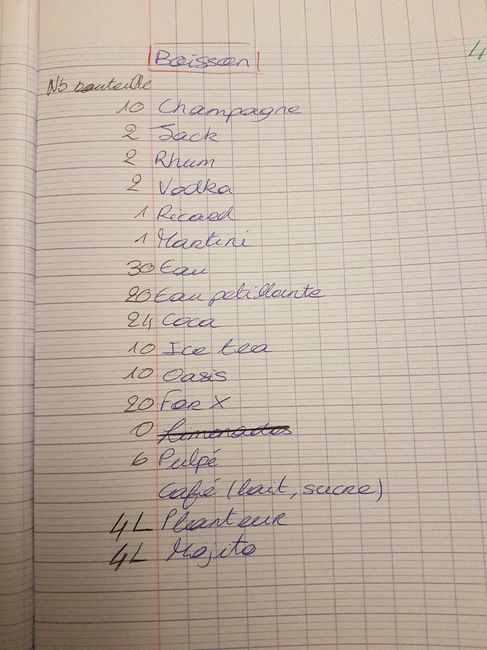 Boisson
Nb bouteille
10 Champagne
2 Jack
2 Rhum
2 Vodka
1 Ricard
1 Martini
30 Eau
20 Eau petillante
24 Coca
10 Ice tea
10 Oasis
20 For X
0 Limonades
6 Pulpé
Café (lait, sucre)
4L Planteur
4L Mojito